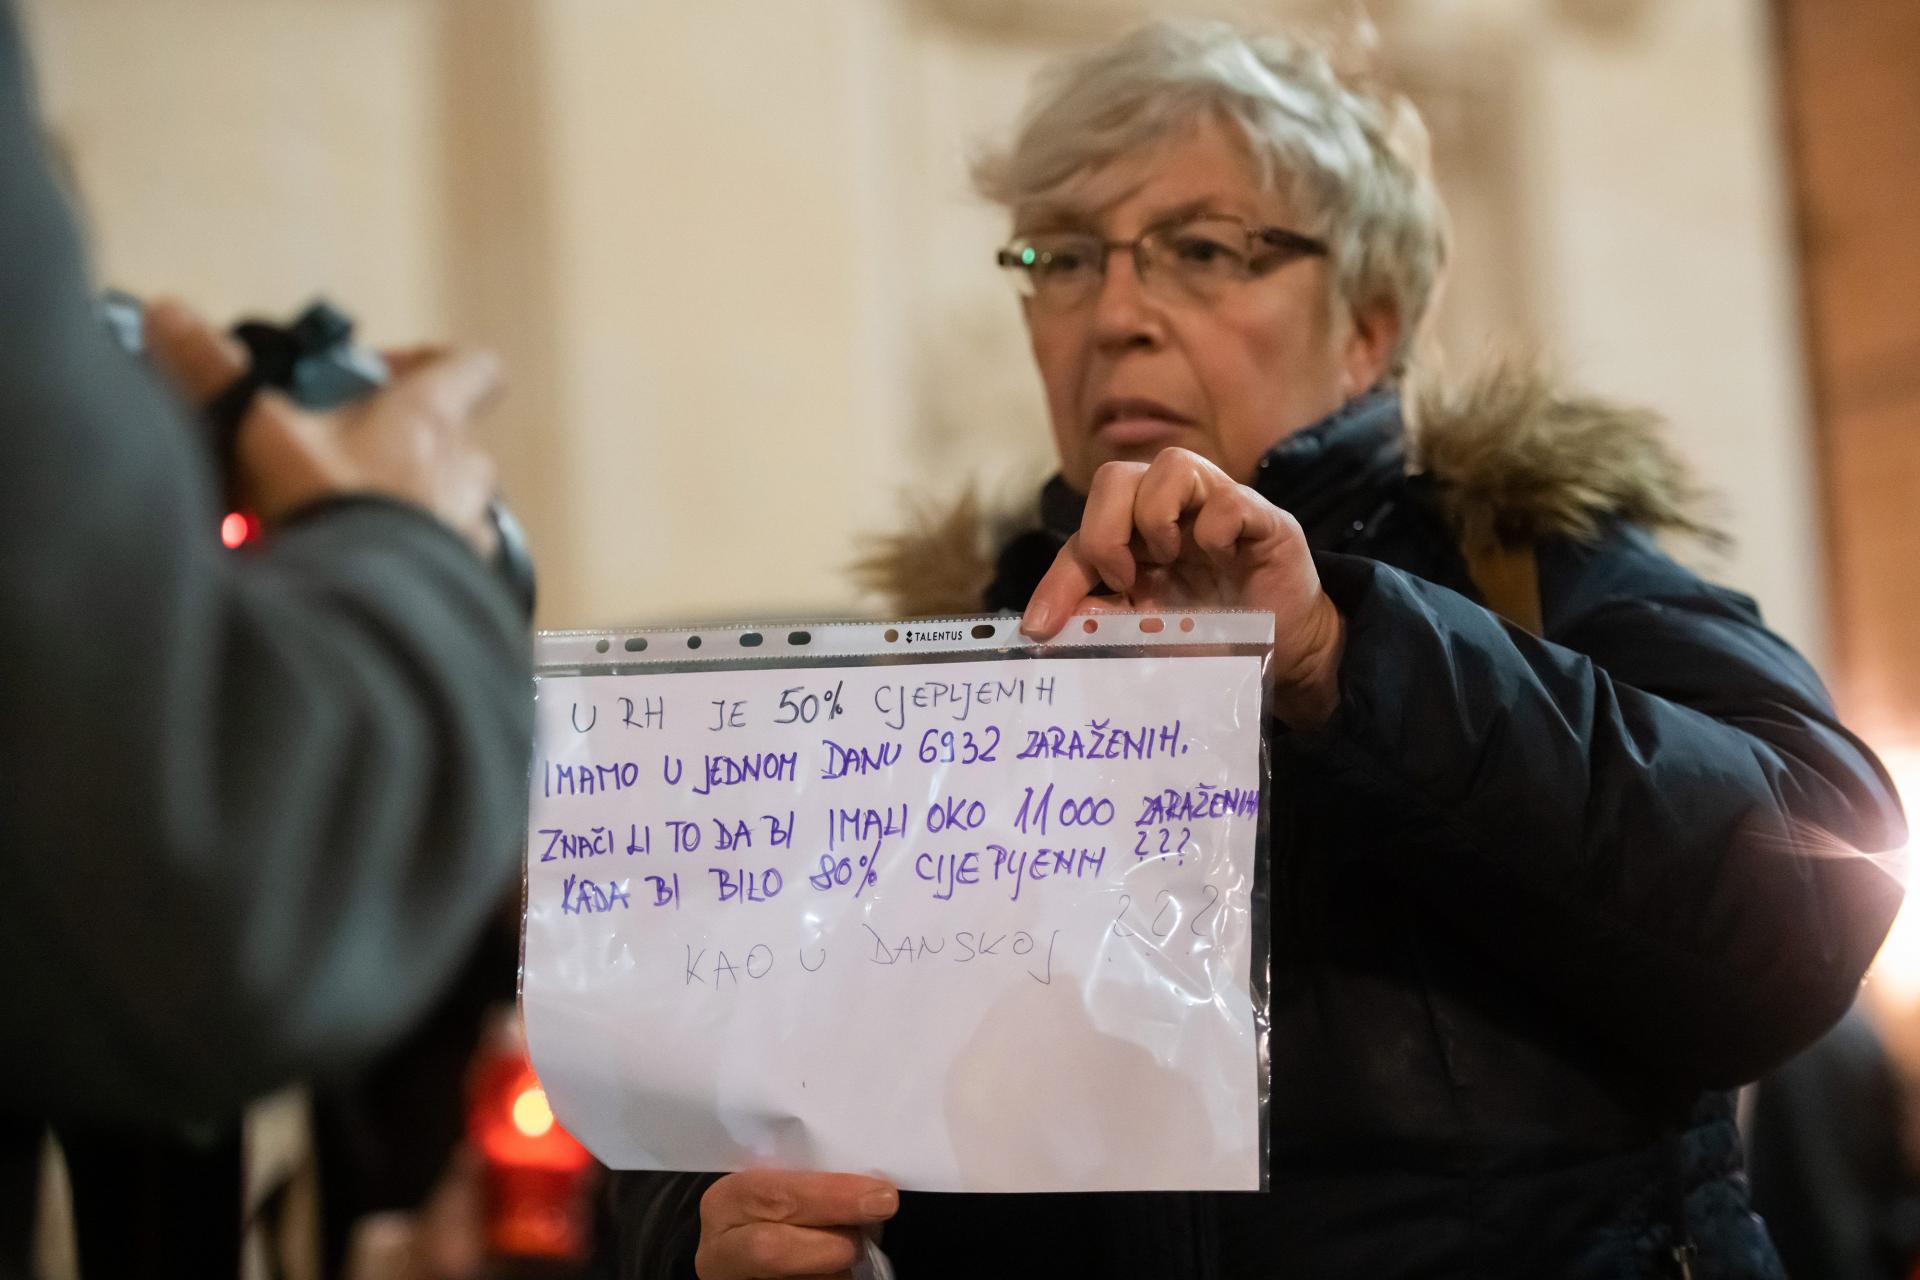 TALENTUS
U RH JE 50% CJEPLJENIH
IMAMO U JEDNOM DANU 6932 ZARAŽENIH.
ZNAČI LI TO DA BI IMALI OKO 11000 ZARAŽENIH
KADA BI BILO 80% CIJEPLJENIH ???
KAO U DANSKOJ ???